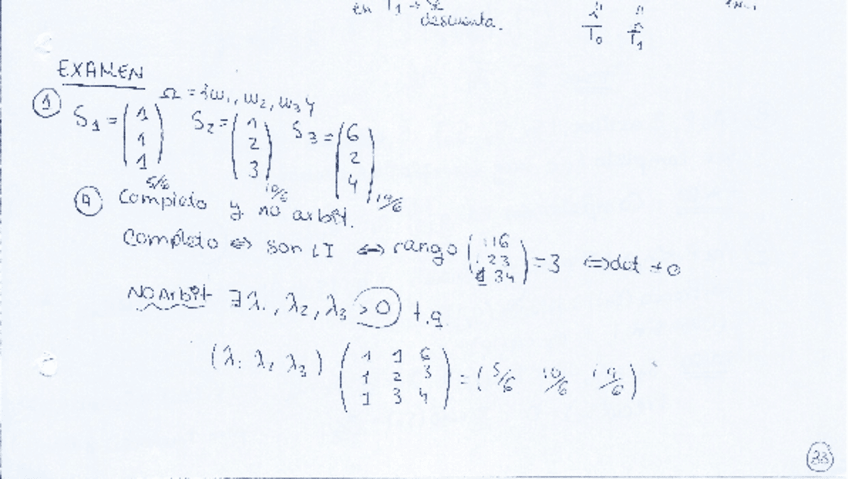 en T₁ → 
descuenta.
T₀ T₁
EXAMEN
① Ω = {w₁, w₂, w₃}
S₁ = (1 1 1) S₂ = (1 2 3) S₃ = (6 2 4)
5/6 10/6 19/6
Completo y no arbit.
Completo ⇔ son LI ⇔ rango (116 / 123 / 134) = 3 ⇔ det ≠ 0
NO Arbit ∃ λ₁, λ₂, λ₃ >0 t.q
(λ₁ λ₂ λ₃) (1 1 6 / 1 2 3 / 1 3 4) = (5/6 10/6 19/6)
33